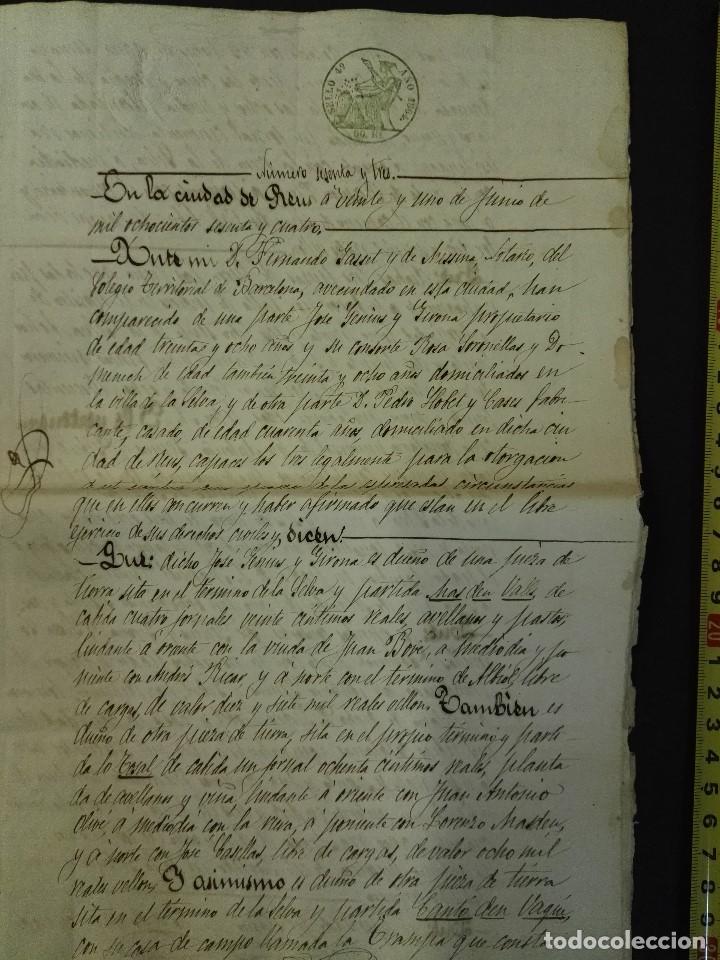 SELLO 4º AÑO 1864.
60. Rs
Número sesenta y tres.
En la ciudad de Reus a veinte y uno de Junio de
mil ochocientos sesenta y cuatro.
Ante mi D. Fernando Gasset y de Messina, Notario, del
Colegio Territorial de Barcelona, avecindado en esta ciudad, han
comparecido de una parte José Genius y Girona propietario
de edad treinta y ocho años y su consorte Rosa Soronellas y Do-
menech de edad tambien treinta y ocho años domiciliados en
la villa de la Selva, y de otra parte D. Pedro y Cases fabri-
cante, casado, de edad cuarenta años, domiciliado en dicha ciu
dad de Reus, capaces los tres legalmente para la otorgacion
de las espresadas circunstancias
que en ellos concurren y haber afirmado que estan en el libre
ejercicio de sus derechos civiles y, dicen:
Que: dicho José Genius y Girona es dueño de una pieza de
tierra sita en el termino de la Selva y partida Mas den Valls, de
cabida cuatro jornales veinte céntimos reales, avellanos y pastos,
lindante á oriente con la viuda de Juan Bové, a mediodia y po
niente con Andrés Ricar, y á norte con el término de Albiol, libre
de cargas, de valor diez y siete mil reales vellon. Tambien es
dueño de otra pieza de tierra, sita en el propio término y parti-
da lo Tosal de cabida un jornal ochenta céntimos reales, planta
da de avellanos y viña, lindante á oriente con Juan Antonio
Olivé, á mediodia con la riera, á poniente con Lorenzo Masden,
y á norte con José Casellas, libre de cargas, de valor ocho mil
reales vellon. Y asimismo es dueño de otra pieza de tierra
sita en el término de la Selva y partida Cantó den Vaqué,
con su casa de campo llamada la Trampa que consta
todocoleccion.net
20 1 2 3 4 5 6 7 8 9